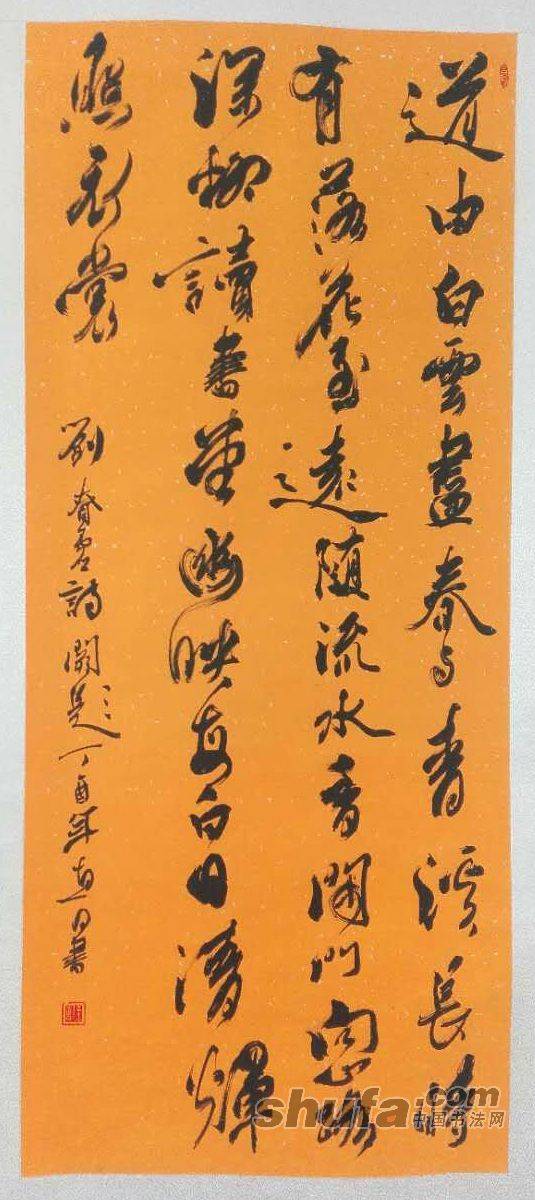 道由白雲盡春与青溪長時
有落花至遠随流水香閑門向山路
深柳讀書堂幽映每白日清煇
照衣裳
劉眘虛詩闕題丁酉年書
shufa.com
中国书法网